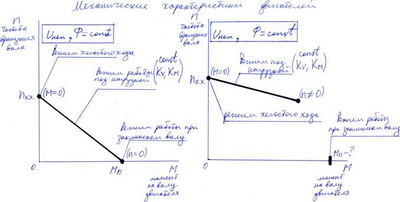 Механические характеристики двигателей
n
частота
вращения
вала
Uном, Ф=const
Режим холостого хода
nхх
(M=0)
Режим работы
под нагрузкой (const
Kv, KM)
Режим работы при
заклиненном валу
(n=0)
0
Mп
M
момент
на валу
двигателя
n
частота
вращения
вала
Uном, Ф=const
(M=0)
nхх
Режим под
нагрузкой (const
Kv, KM)
(n≠0)
режим холостого хода
Режим работы
при заклиненном
валу
0
Mп-?
момент
на валу
двигателя
M